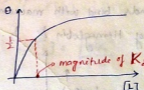 θ
1/2
magnitude of K
[L]